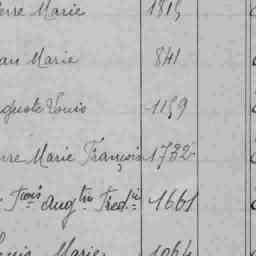 erre Marie 1815
an Marie 841
uguste Louis 1159
erre Marie François 1732
Fçois Augtin Fredic 1661
ouis Marie 1064